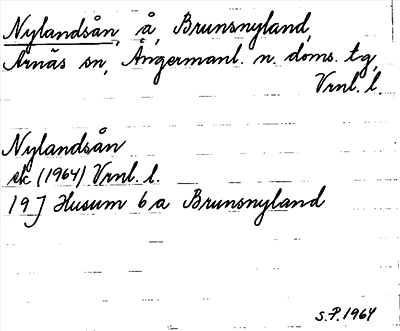 Nylandsån, å, Brunsnyland,
Arnäs sn, Ångermanl. n. doms. tg,
Vrnl. l.
Nylandsån
ek (1964) Vrnl. l.
19J Husum 6a Brunsnyland
S.P. 1964